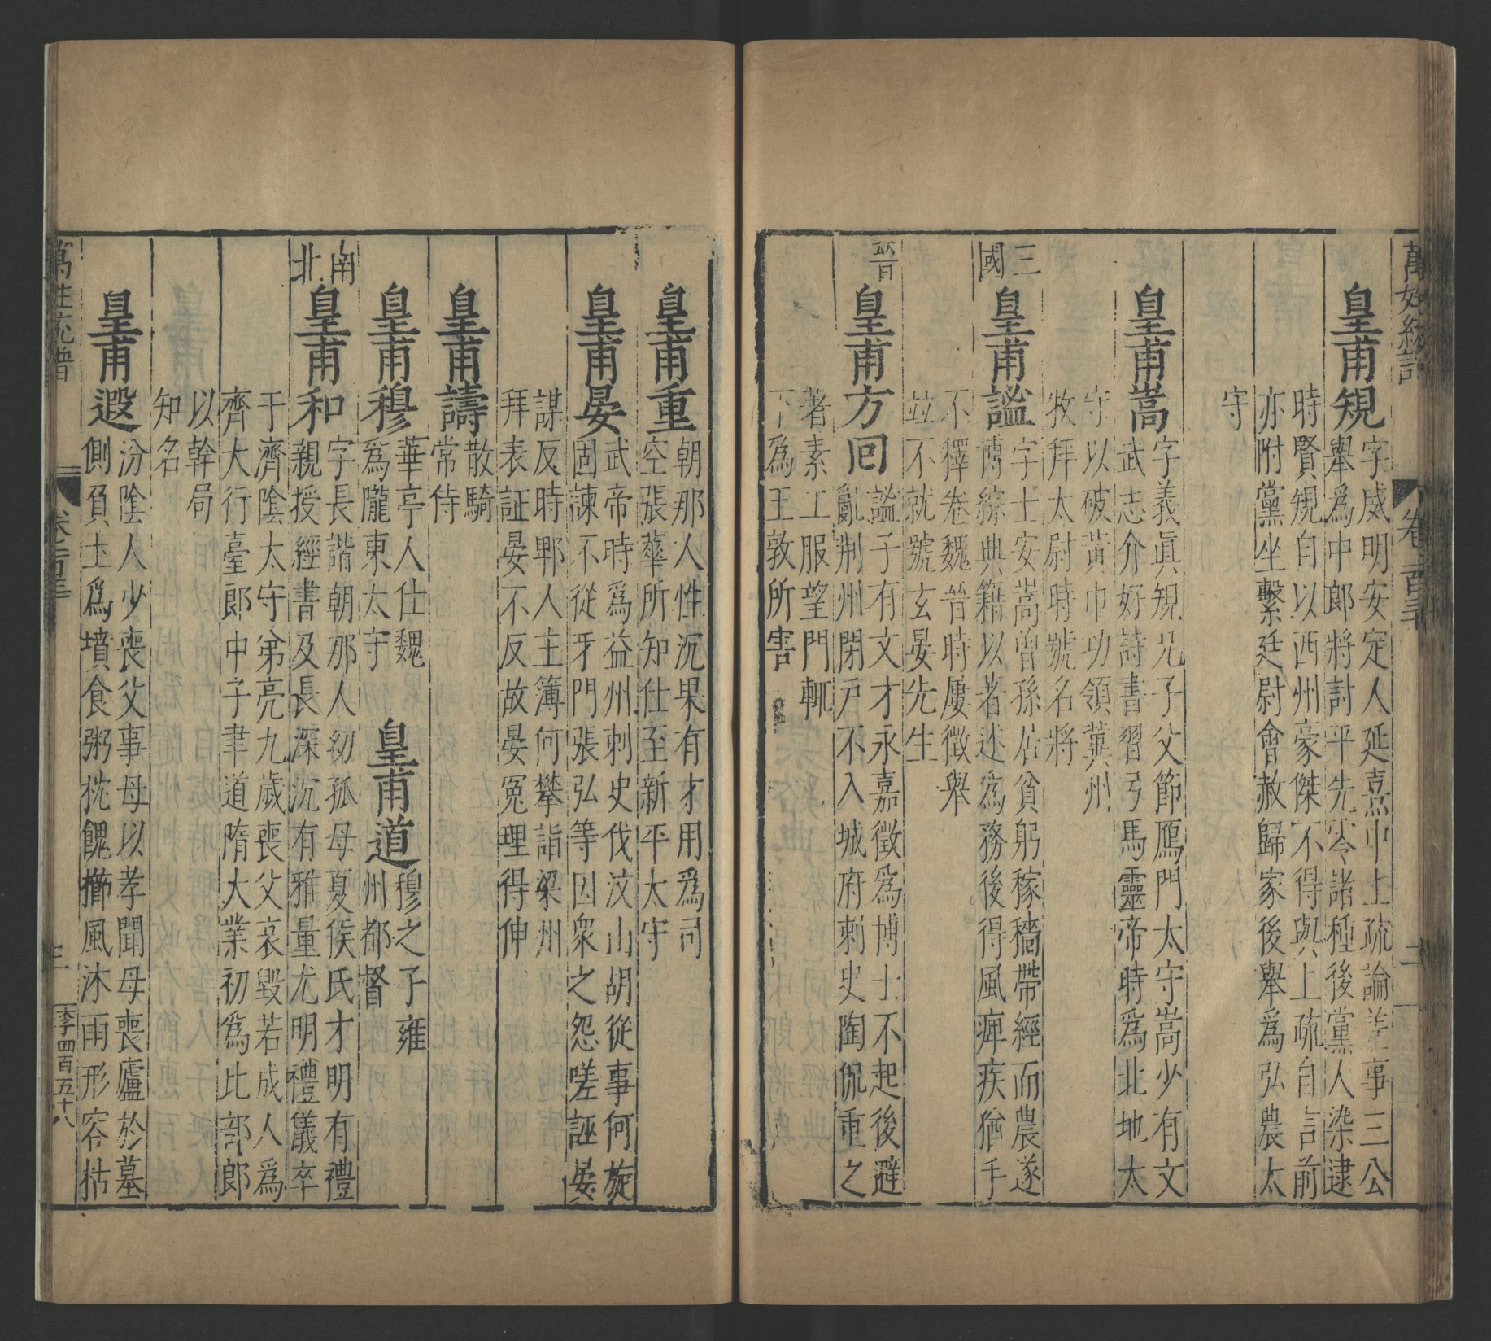 皇甫規
字威明安定人延熹中上疏論羌事三公
舉爲中郎將討平先零諸種後黨人染逮
時賢規自以西州豪傑不得與上疏自言前
亦附黨坐繫廷尉會赦歸家後舉爲弘農太
守
皇甫嵩
字義眞規兄子父節鴈門太守嵩少有文
武志介好詩書習弓馬靈帝時爲北地太
守以破黃巾功領冀州
牧拜太尉時號名將
三國
皇甫謐
字士安嵩曾孫居貧躬稼穡帶經而農遂
博綜典籍以著述爲務後得風痺疾猶手
不釋卷魏晉時屢徵舉
竝不就號玄晏先生
晉
皇甫方回
謐子有文才永嘉徵爲博士不起後避
亂荆州閉戸不入城府刺史陶侃重之
著素工服望門輒
下爲王敦所害
皇甫重
朝那人性沉果有才用爲司
空張華所知仕至新平太守
皇甫晏
武帝時爲益州刺史伐汶山胡從事何旋
固諫不從牙門張弘等因衆之怨嗟誣晏
謀反時郫人主簿何攀詣梁州
拜表証晏不反故晏冤理得伸
皇甫譸
散騎
常侍
皇甫穆
華亭人仕魏
爲隴東太守
皇甫道
穆之子雍
州都督
南北
皇甫和
字長諧朝那人初孤母夏侯氏才明有禮
親授經書及長深沉有雅量尤明禮儀卒
于濟陰太守弟亮九歲喪父哀毀若成人爲
齊大行臺郎中子聿道隋大業初爲比部郎
以幹局
知名
皇甫遐
汾陰人少喪父事母以孝聞母喪廬於墓
側負土爲墳食粥枕餽櫛風沐雨形容枯
萬姓統譜